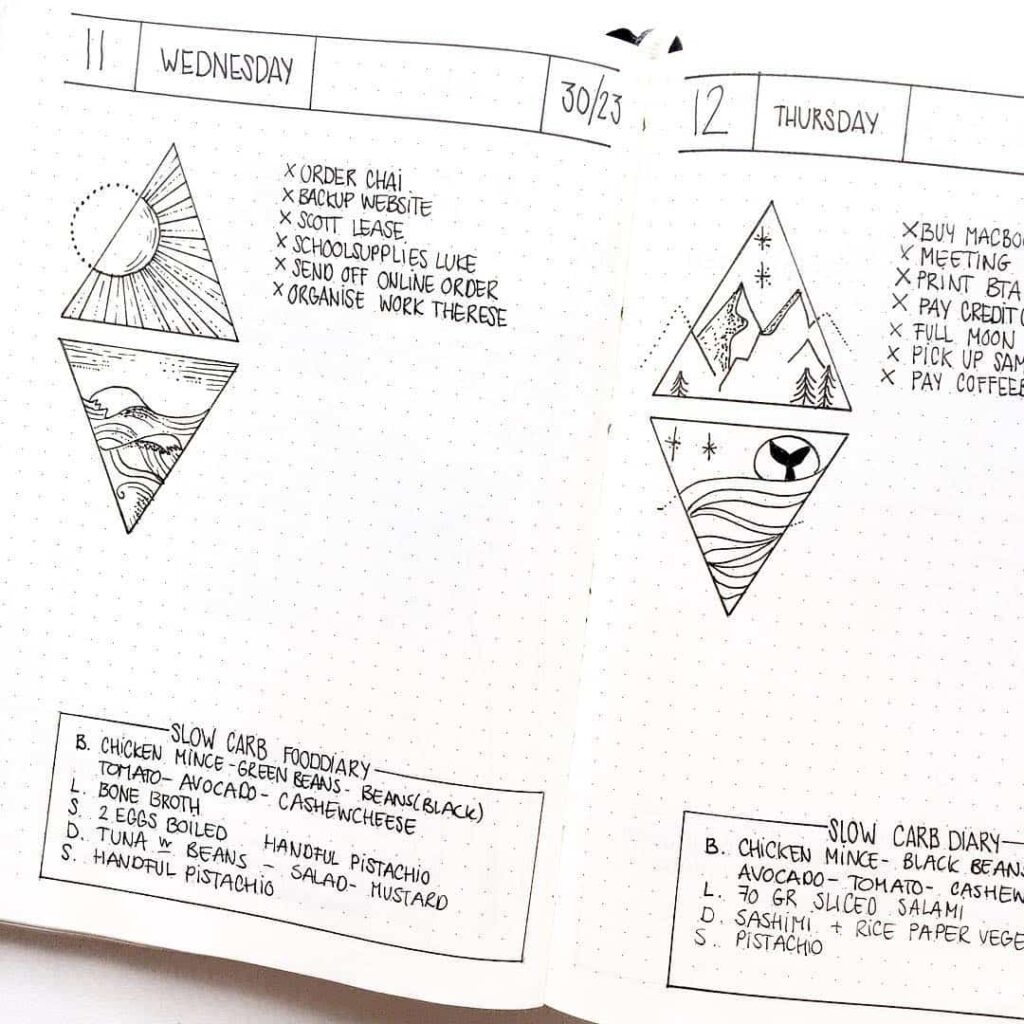 11 WEDNESDAY 30/23
X ORDER CHAI
X BACKUP WEBSITE
X SCOTT LEASE
X SCHOOLSUPPLIES LUKE
X SEND OFF ONLINE ORDER
X ORGANISE WORK THERESE
SLOW CARB FOODDIARY
B. CHICKEN MINCE - GREEN BEANS - BEANS (BLACK)
TOMATO - AVOCADO - CASHEWCHEESE
L. BONE BROTH
S. 2 EGGS BOILED HANDFUL PISTACHIO
D. TUNA w BEANS - SALAD - MUSTARD
S. HANDFUL PISTACHIO
12 THURSDAY
X BUY MACBO
X MEETING
X PRINT BTA
X PAY CREDIT
X FULL MOON
X PICK UP SAM
X PAY COFFEE
SLOW CARB DIARY
B. CHICKEN MINCE - BLACK BEANS
AVOCADO - TOMATO - CASHEW
L. 70 GR SLICED SALAMI
D. SASHIMI + RICE PAPER VEGE
S. PISTACHIO